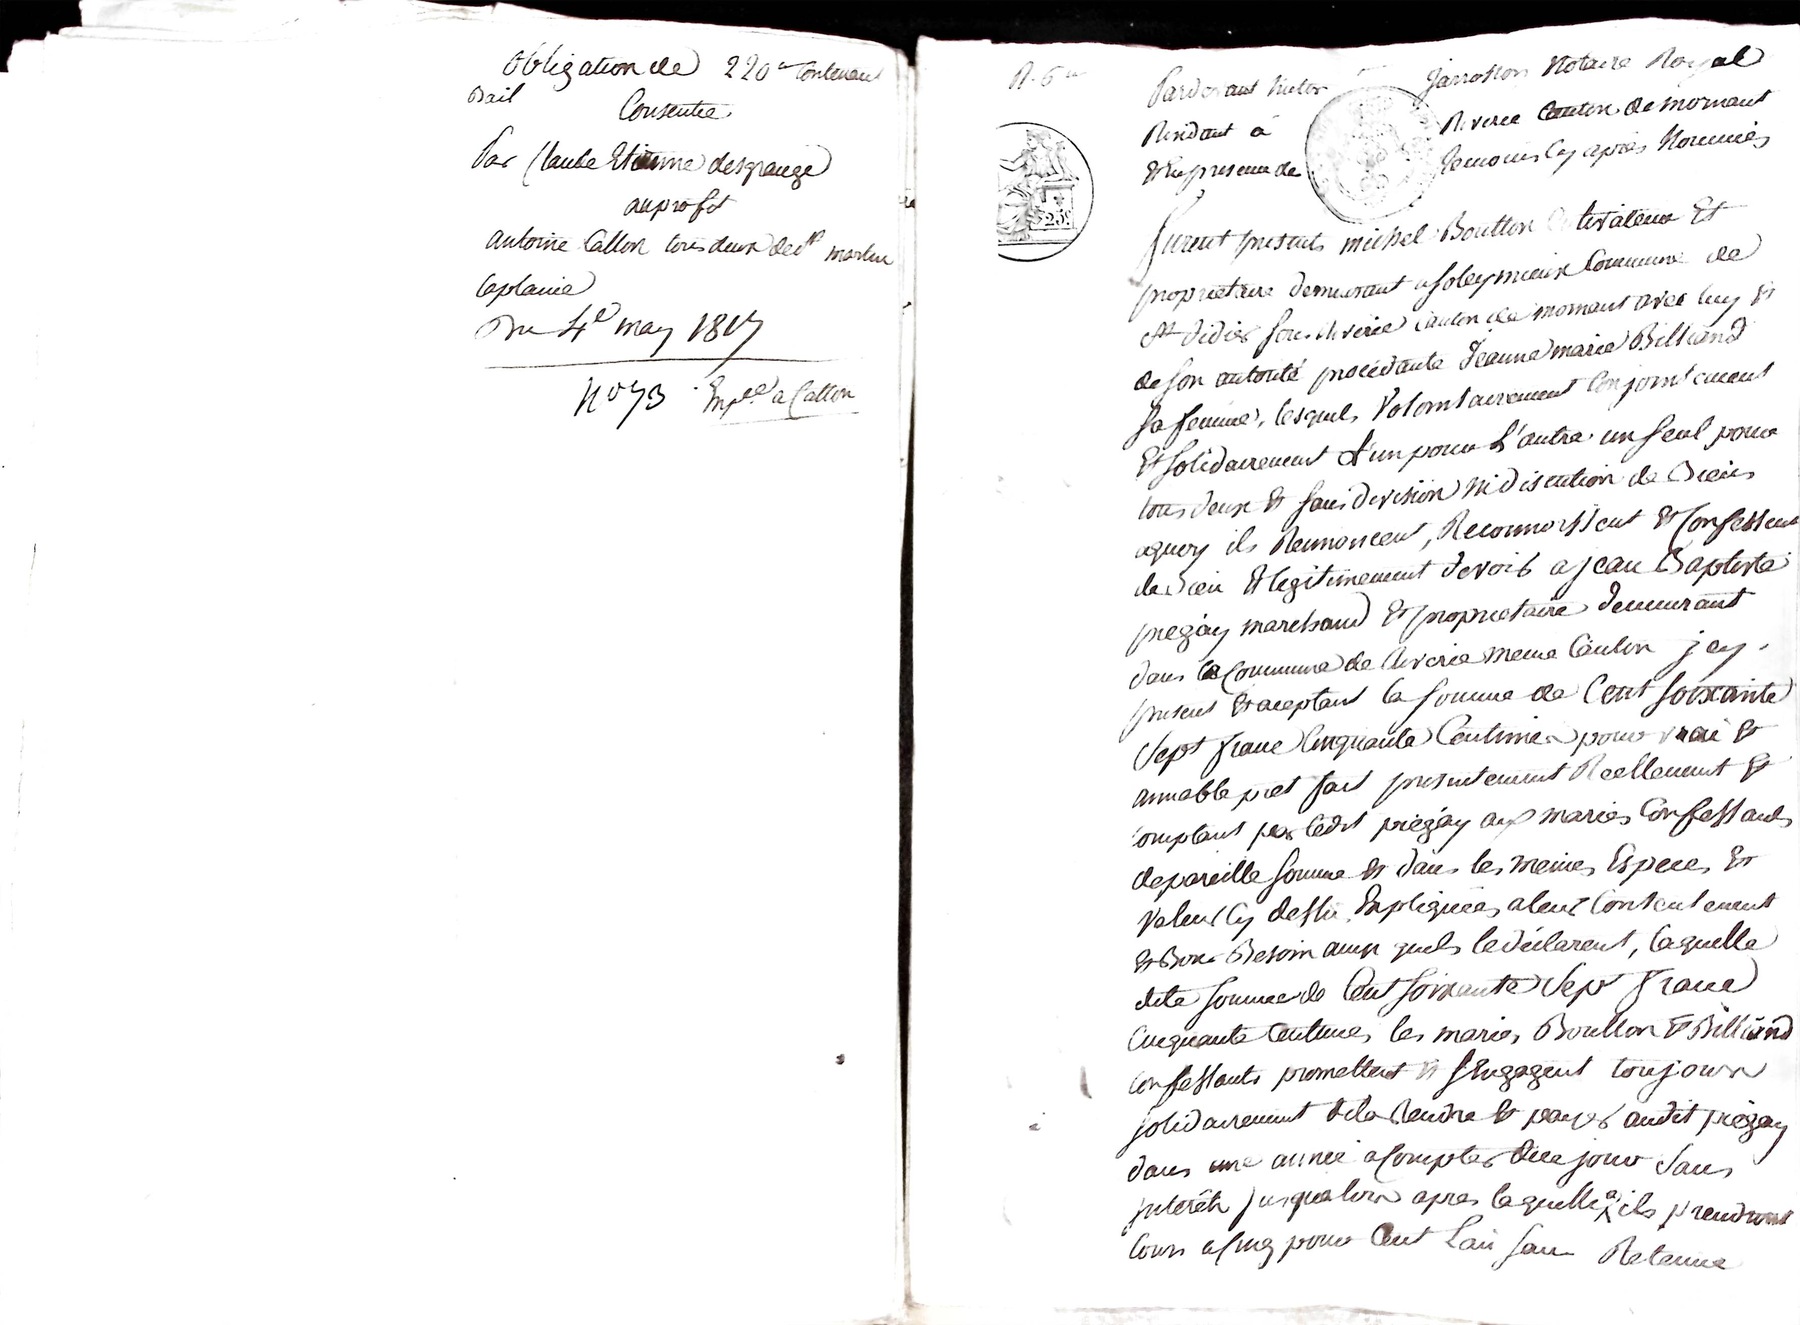 Obligation de 220 contenant
Bail
Consentie
Par Claude Etienne desgrange
au profit
antoine Catton tous deux de st martin
laplaine
Du 4e may 1817
No 73 a Catton
Pardevant victor Jarrosson Notaire Royal
Residant a Riverie Canton de mornant
Et en presence de Temoins Cy après Nommés
25c
furent presents michel Boutton Cultivateur Et
propriétaire demeurant a Soleymieux Commune de
st didier sous Riverie canton de mornant avec luy Et
de son autorité procédante Jeanne marie Billiand
sa femme, lesquels Volontairement Conjointement
Et solidairement L'un pour L'autre un seul pour
tous deux Et sans division Ni discution de Biens
aquoy ils Renoncent, Reconnoissent Et Confessent
de Bien Et legitimement devoir a jean Baptiste
piegay marchand Et propriétaire demeurant
dans la Commune de Riverie meme Canton jcy
present Et aceptant la somme de Cent soixante
sept franc Cinquante Centimes pour vrai Et
amiable pret fait presentement Reellement Et
comptant par ledit piégay aux mariés Confessants
de pareille somme Et dans les memes Especes Et
valeur Cy dessu Expliquées a leur Contentement
Et Bon Besoin ainsi quils le déclarent, laquelle
dite somme de Cent soixante sept franc
Cinquante Centimes les mariés Boutton Et Billiand
confessants promettent Et s'Engagent toujours
solidairement de la Rendre Et payer audit piégay
dans une année a Compter de ce jour sans
interêts jusqualors apres laquelle ils prendront
Cours a Cinq pour Cent L'an sans Retenue